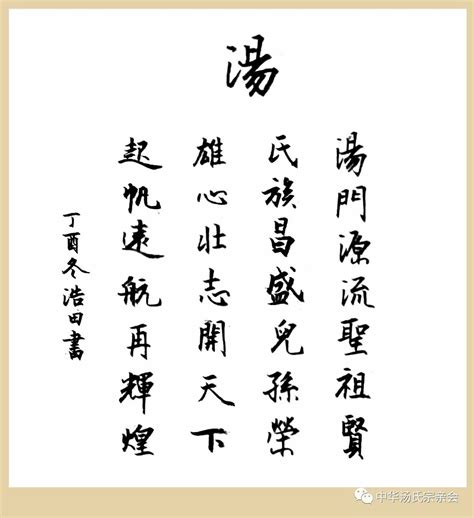 湯
湯門源流聖祖賢
氏族昌盛兒孫榮
雄心壯志開天下
起帆遠航再輝煌
丁酉冬浩田書
中华汤氏宗亲会